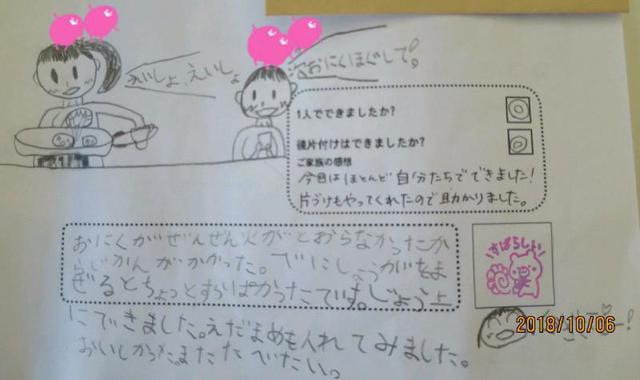 えいしょ、えいしょ
次おにくほぐして!
1人でできましたか?
後片付けはできましたか?
ご家族の感想
今日はほとんど自分たちでできました!
片づけもやってくれたので助かりました。
おにくがぜんぜん火がとおらなかったか
じかんがかかった。べにしょうがをま
ぜるとちょっとすっぱかったです。じょう上
にできました。えだまめも入れてみました。
おいしかった。またたべたい。
すばらしい
2018/10/06